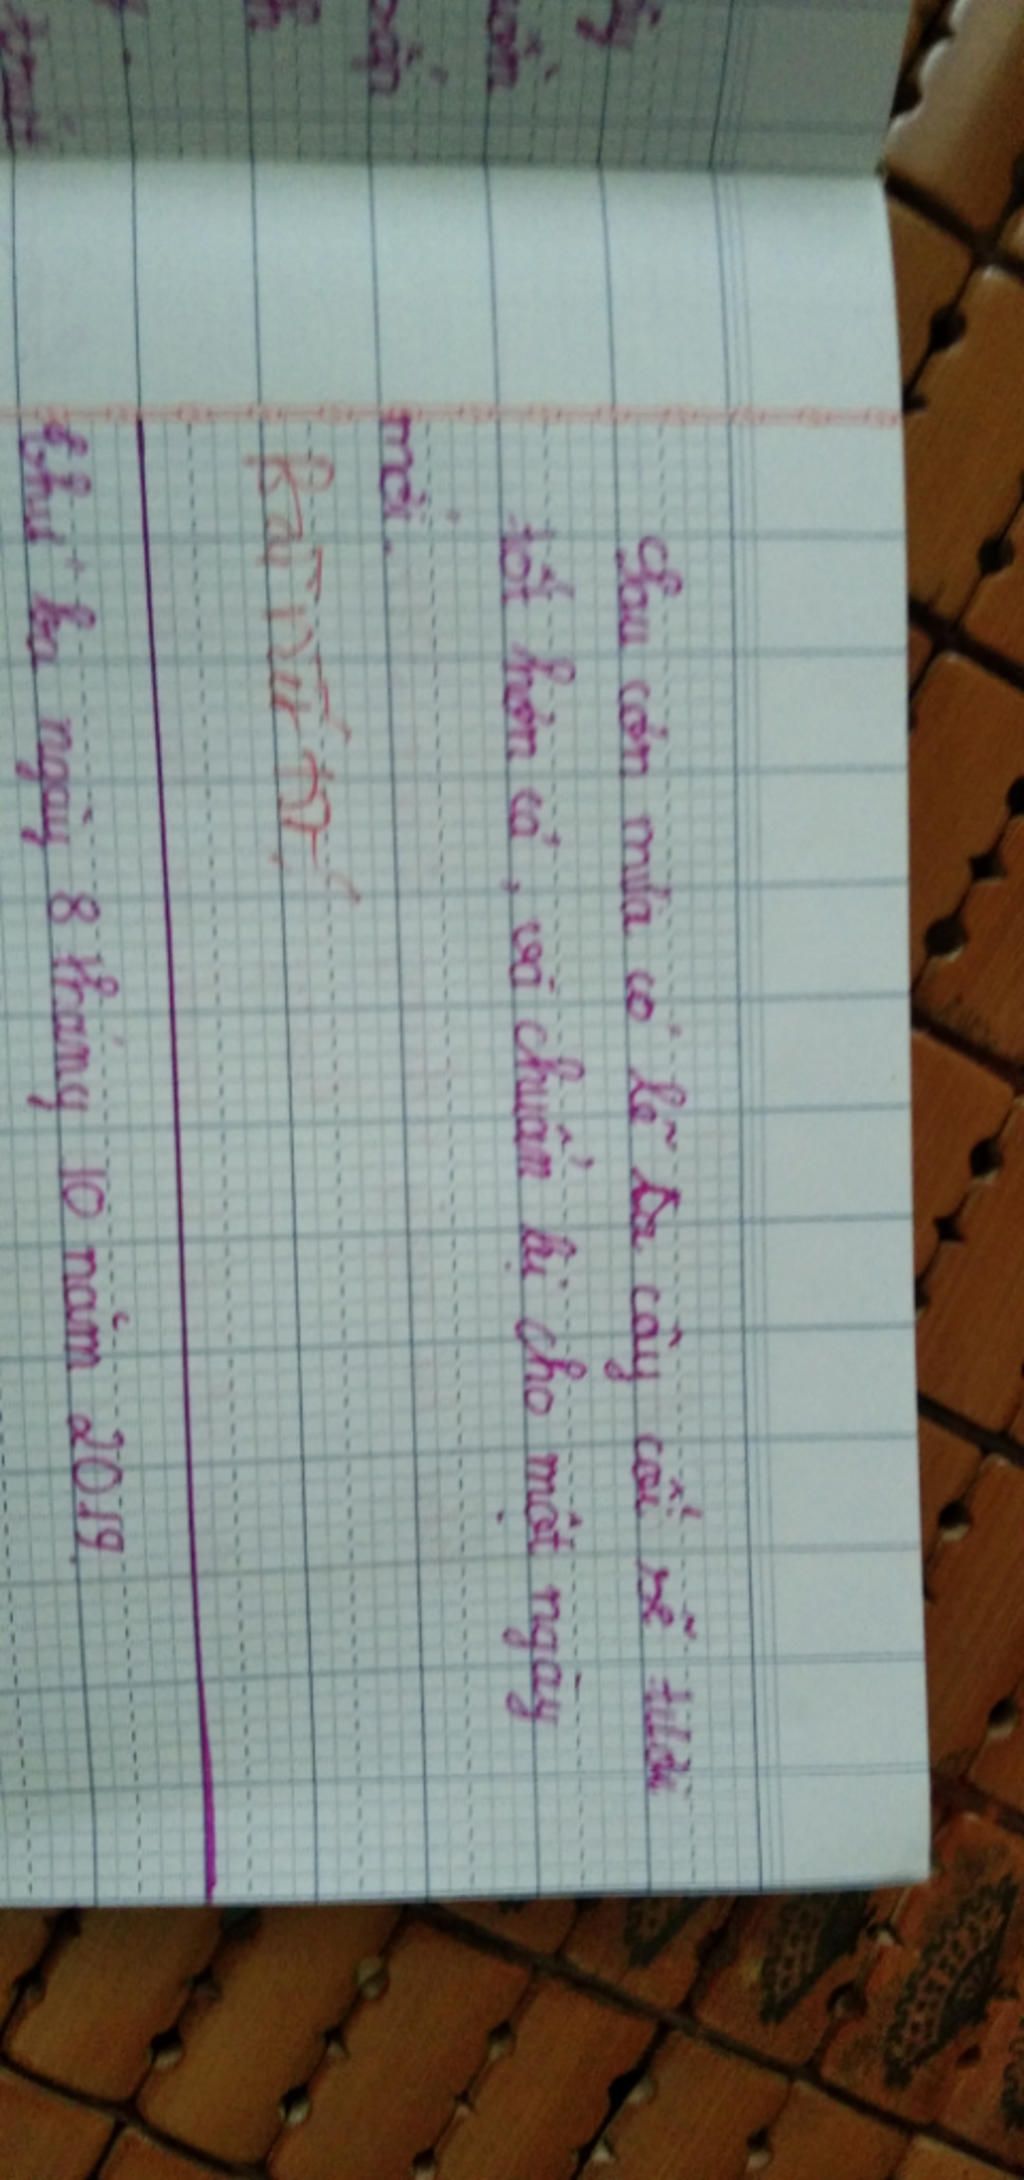 Sau cơn mưa có lẽ là cây cối sẽ tươi
tốt hơn cả, và chuẩn bị cho một ngày
mới.
Bài
Thứ ba ngày 8 tháng 10 năm 2019